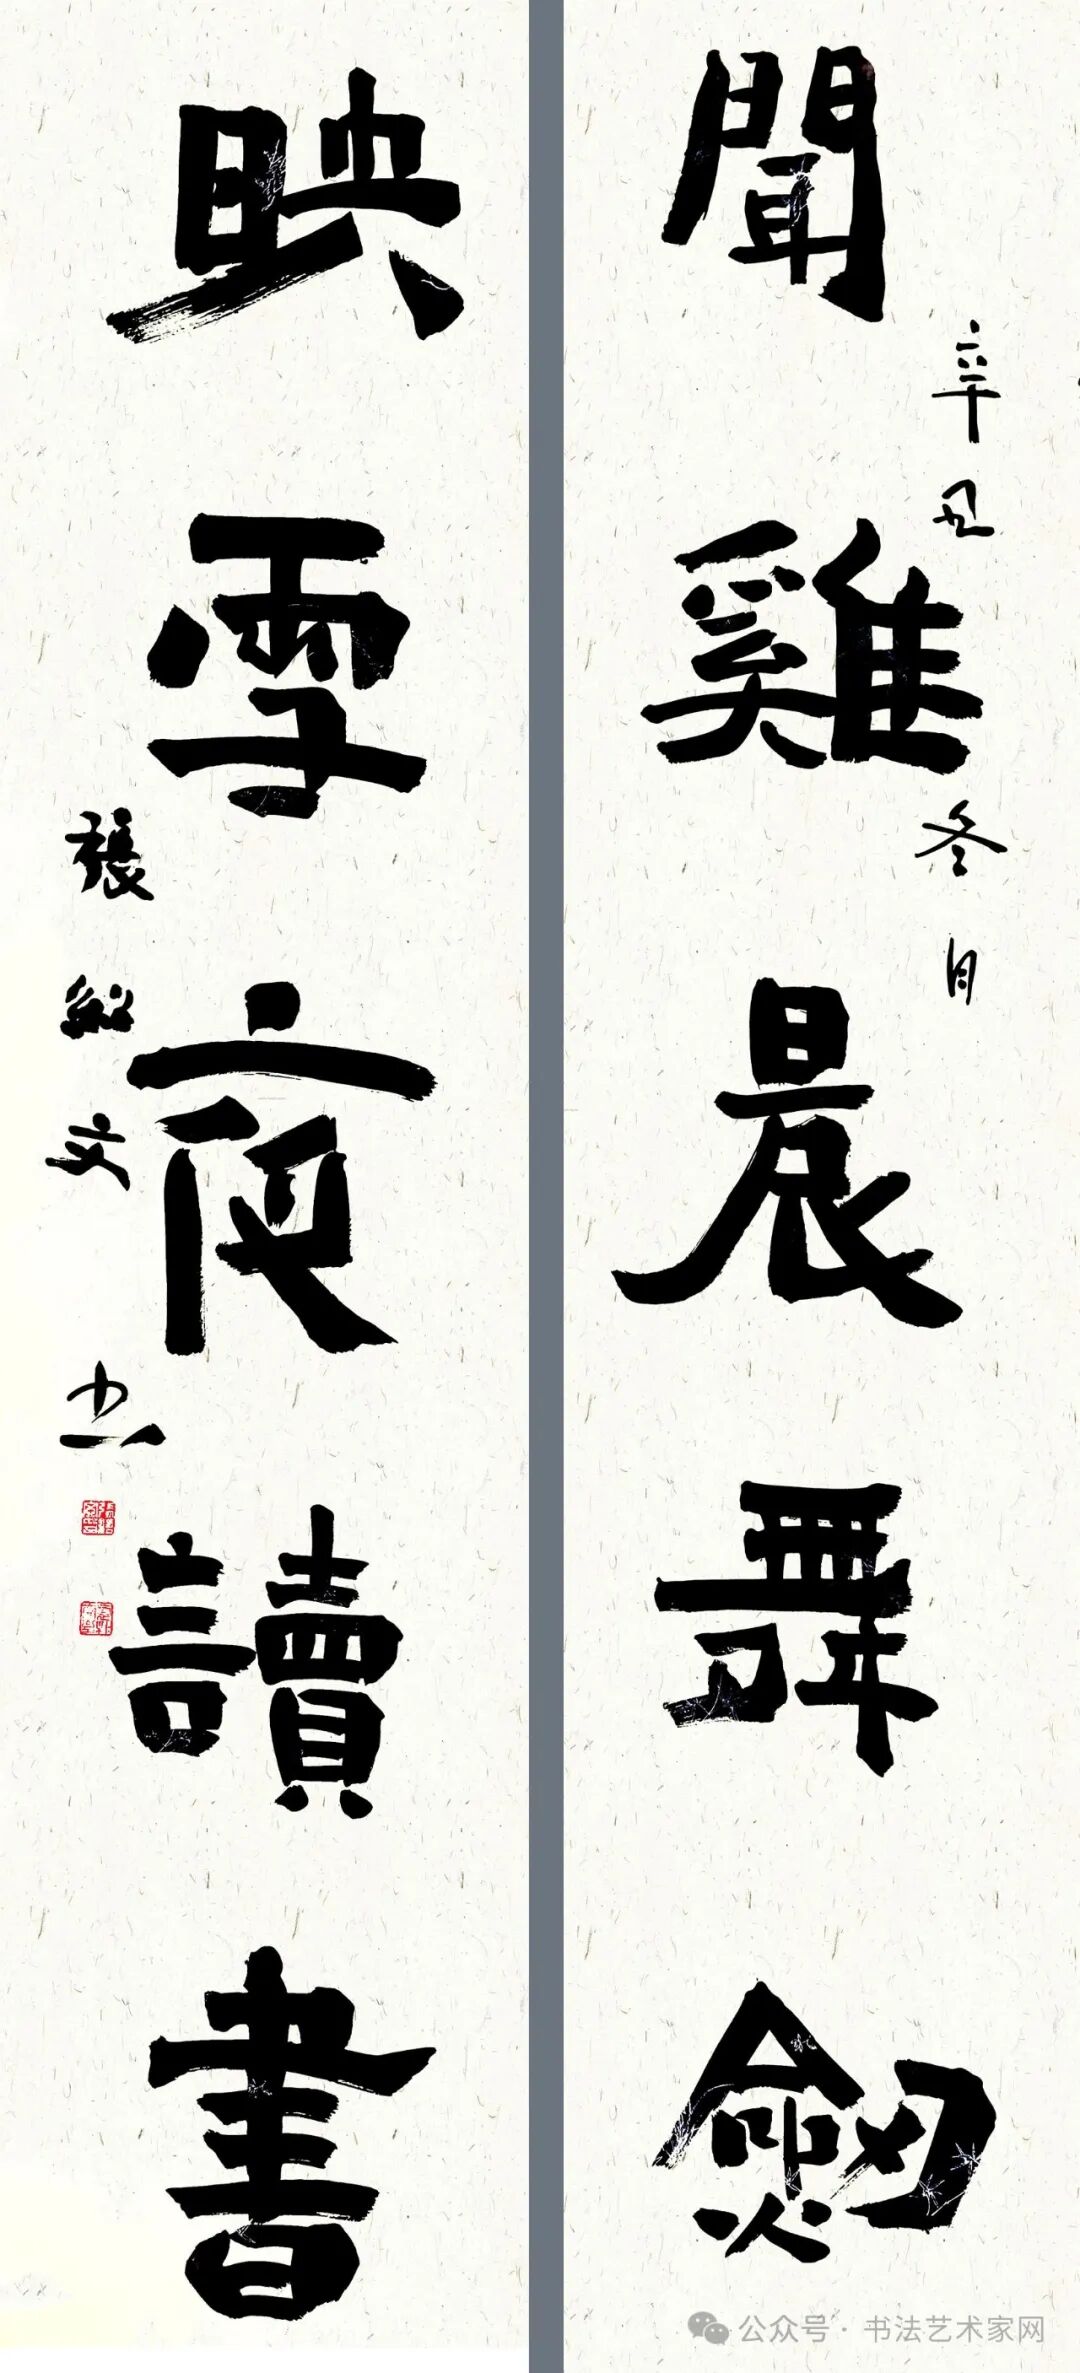 聞雞晨舞劔
辛丑冬月
映雪夜讀書
張紹文书
公众号·书法艺术家网